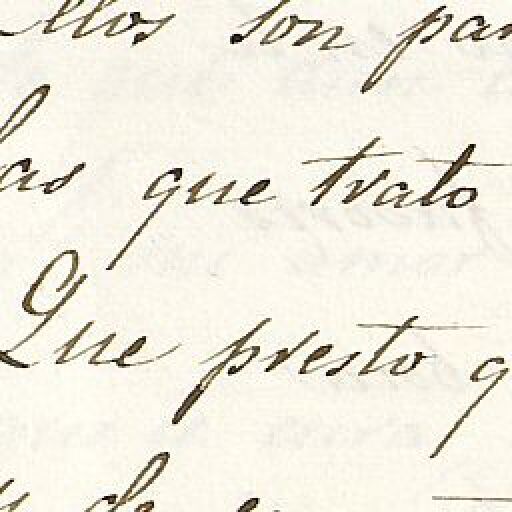 ellos son par
las que trato
Que presto q
de